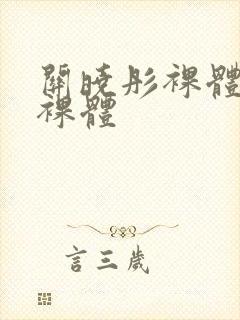 關曉彤裸體
裸體
言三歲